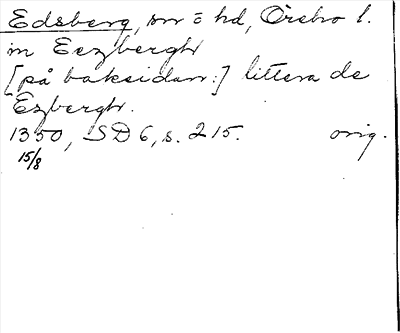 Edsberg, sn o hd, Örebro l.
in Eezbergh
[på baksidan:] littera de
Ezbergh.
1350, SD 6, s. 215. orig.
15/8